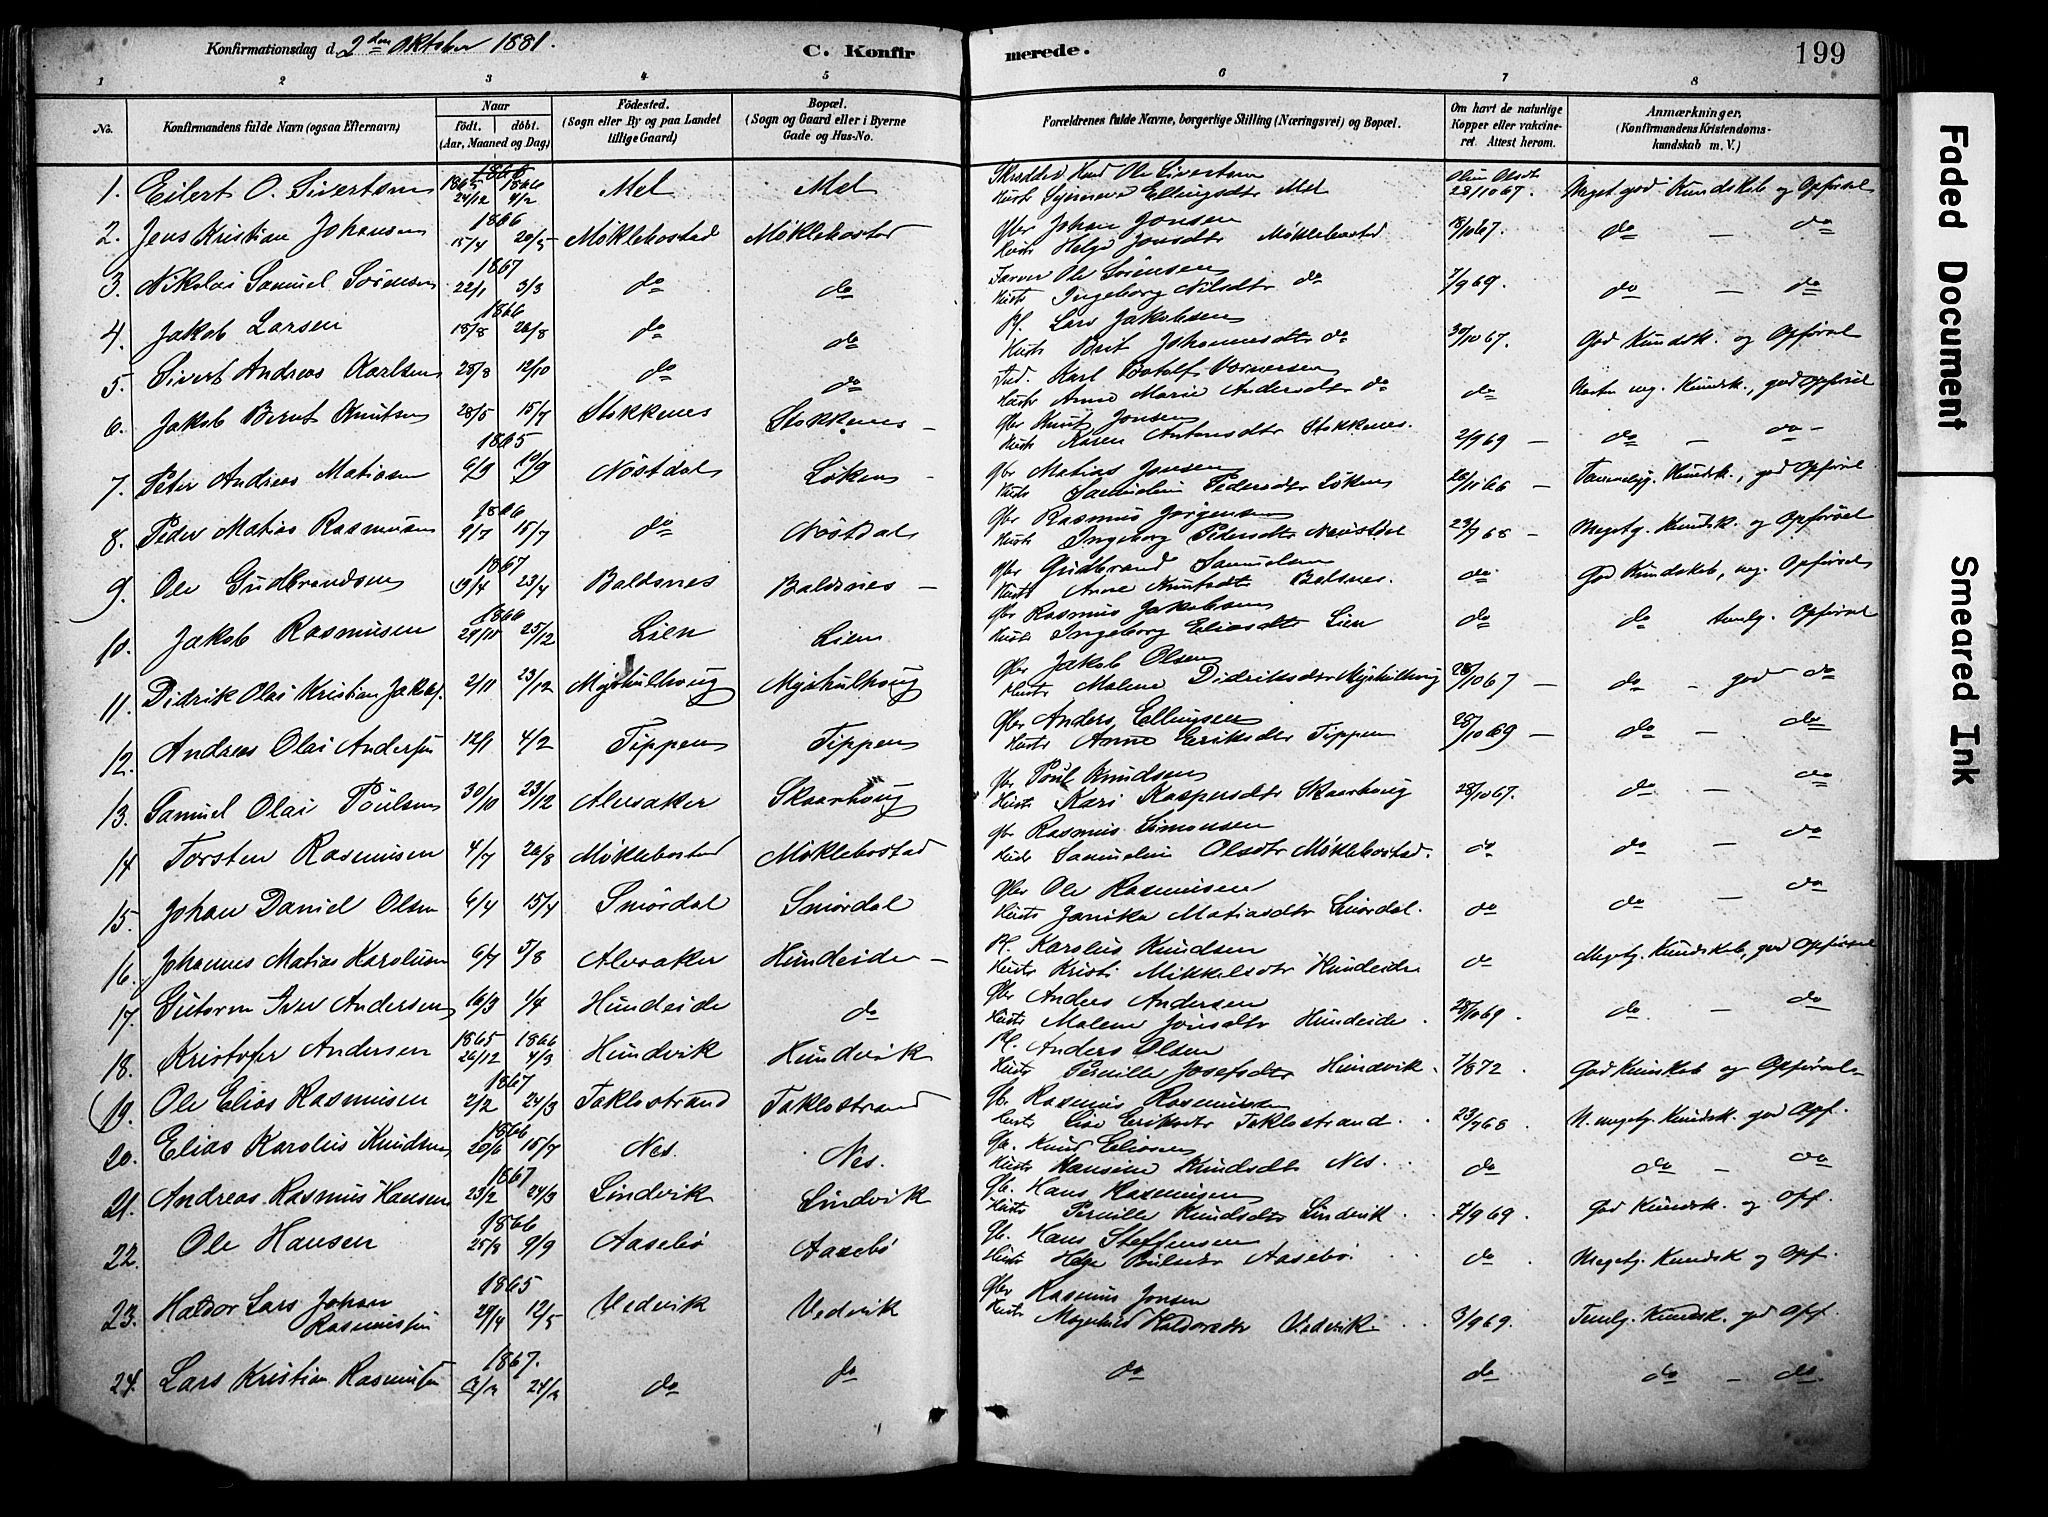 Konfirmationsdag d. 2den Oktober 1881.
C. Konfirmerede.
199
1 2 3 4 5 6 7 8
No.
Konfirmandens fulde Navn (ogsaa Efternavn)
Naar
født. døbt.
(Aar, Maaned og Dag)
Födested.
(Sogn eller By og paa Landet
tillige Gaard)
Bopæl.
(Sogn og Gaard eller i Byerne
Gade og Hus-No.
Forældrenes fulde Navne, borgerlige Stilling (Næringsvei) og Bopæl.
Om havt de naturlige
Kopper eller vakcine-
ret. Attest herom.
Anmærkninger.
(Konfirmandens Kristendoms-
kundskab m. V.)
1. Eilert O. Sivertsen 1865 24/12 1866 4/2 Mel Mel Ole Sivertsen Hust. Synneva Ellingsdtr Mel 28/10 67. Meget god Kundskab og Opførsel
2. Jens Kristian Johansen 1866 15/4 20/5 Møklebostad Møklebostad Gbr Johan Jonsen Hust. Helge Jonsdtr Møklebostad 18/10 67. do — do
3. Nikolai Samuel Sørensen 1867 22/1 3/3 do do Farver Ole Sørensen Hust. Ingeborg Nilsdtr do 7/9 69. do — do
4. Jakob Larsen 1866 18/8 26/8 do do Pl. Lars Jakobsen Hust. Brit Johannesdtr do 30/10 67. God Kundsk. og Opførsel
5. Sivert Andreas Karlsen 28/8 12/10 do do Ind. Karl Botolf Hust. Anne Marie Andersdtr do do Kundsk., god Opførsel
6. Jakob Bernt Knutsen 28/5 15/7 Stokkenes Stokkenes Gbr Knut Jonsen Hust. Karen Antonsdtr Stokkenes. 2/9 69 do — do
7. Peter Andreas Matiasen 1865 6/9 19/9 Nöstdal Løken Gbr Matias Jonsen Hust. Samueline Pedersdtr Løken 28/10 66 Kundsk., god Opførsel
8. Peder Matias Rasmusen 1866 9/7 15/7 do Nöstdal Gbr Rasmus Jørgensen Hust. Ingeborg Pedersdtr 23/9 68 Megetg. Kundsk. og Opførsel
9. Ole Gudbrandsen 1867 19/4 23/4 Baldsnes Baldsnes Gbr Gudbrand Samuelsen Hust. Anne Knutsdtr Balsnes. do God Kundskab, mg. Opførsel
10. Jakob Rasmusen 1866 29/10 25/12 Lien Lien Gbr Rasmus Jakobsen Hust. Ingeborg Eliasdtr Lien do do temlg. Opførsel
11. Didrik Olai Kristian Jakobs. 2/11 23/12 Myskulhoug Myskulhoug Gbr Jakob Olsen Hust. Malene Didriksdtr Myskulhoug 28/10 67 do — god do
12. Andreas Olai Andersen 12/1 4/2 Tippen Tippen Gbr Anders Ellingsen Hust. Anne Eriksdtr Tippen 28/10 69 do — do
13. Samuel Olai Poulsen 30/10 23/12 Alvsaker Skaarhoug Gbr Poul Knudsen Hust. Kari Kaspersdtr Skaarhoug 28/10 67. do — do
14. Torsten Rasmusen 4/7 26/8 Møklebostad Møklebostad Gbr Rasmus Simonsen Hust. Samueline Olsdtr Møklebostad. do do — do
15. Johan Daniel Olsen 6/4 15/4 Smördal Smördal Gbr Ole Rasmusen Hust. Janika Matiasdtr Smördal. do do — do
16. Johannes Matias Karolusen 6/7 5/8 Alvsaker Hundeide Pl. Karolus Knudsen Hust. Kristi Mikkelsdtr Hundeide do Megetg. Kundskab, god Opførsel
17. Gutorm Iver Andersen 16/3 1/4 Hundeide do Gbr Anders Andersen Hust. Malene Jonsdtr Hundeide. 28/10 69. do — do
18. Kristofer Andersen 1865 26/12 1866 4/3 Hundvik Hundvik Pl. Anders Olsen Hust. Pernille Josefsdtr Hundvik. 7/8 72. God Kunskab og Opførsel
19. Ole Elias Rasmusen 1867 2/2 24/3 Taklostrand Taklostrand Gb. Rasmus Rasmusen Hust. Lise Eriksdtr Taklostrand. 23/9 68. N. megetg. Kundsk. god Opf.
20. Elias Karolus Knudsen 1866 20/6 15/7 Nes. Nes. Gb. Knud Eliasen Hust. Hansine Knudsdtr Nes. do do — do
21. Andreas Rasmus Hansen 1867 23/2 24/3 Lindvik Lindvik Gb. Hans Rasmusen Hust. Pernille Knudsdtr Lindvik. 7/9 69. God Kundsk. og Opf.
22. Ole Hansen 1866 25/8 9/9 Aasebø Aasebø Gb. Hans Steffensen Hust. Helge Poulsdtr Aasebø. do Megetg. Kundsk og Opf.
23. Haldor Lars Johan Rasmusen 1865 29/4 12/5 Vedvik Vedvik Gbr Rasmus Jonsen Hust. Haldorsdtr Vedvik. 3/9 69. Temlg. Kundsk. god Opf.
24. Lars Kristian Rasmusen 1867. 24/3 do do do do do — do
Faded Document
Smeared Ink